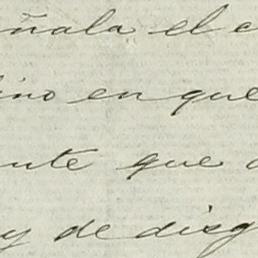 ñala el c
ino en que
nte que
y de disg